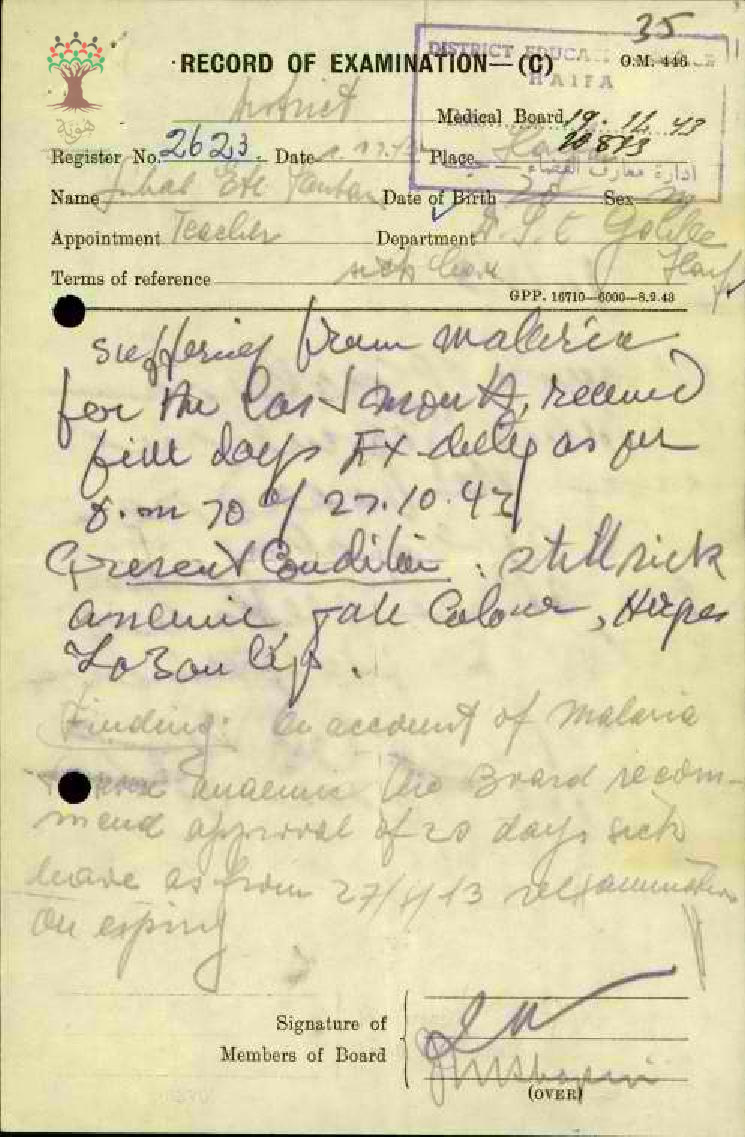 35
RECORD OF EXAMINATION—(C) O.M. 446
DISTRICT EDUCATION OFFICE
HAIFA
District Medical Board 19.11.43
10873
Register No. 2623. Date Place
ادارة معارف القضاء — حيفا
Name Date of Birth Sex m
Appointment Teacher Department Galilee
Terms of reference sick leave
GPP. 16710—6000—8.2.43
suffering from malaria
for the last month, received
five days Ex duty as per
o.m 70 of 27.10.43
Present Condition: still sick
anaemic pale Colour, Herpes
on lips.
Finding: On account of malaria
anaemia the Board recom-
mend approval of 20 days sick
leave as from reexamination
on expiry
Signature of
Members of Board
(OVER)
هوية